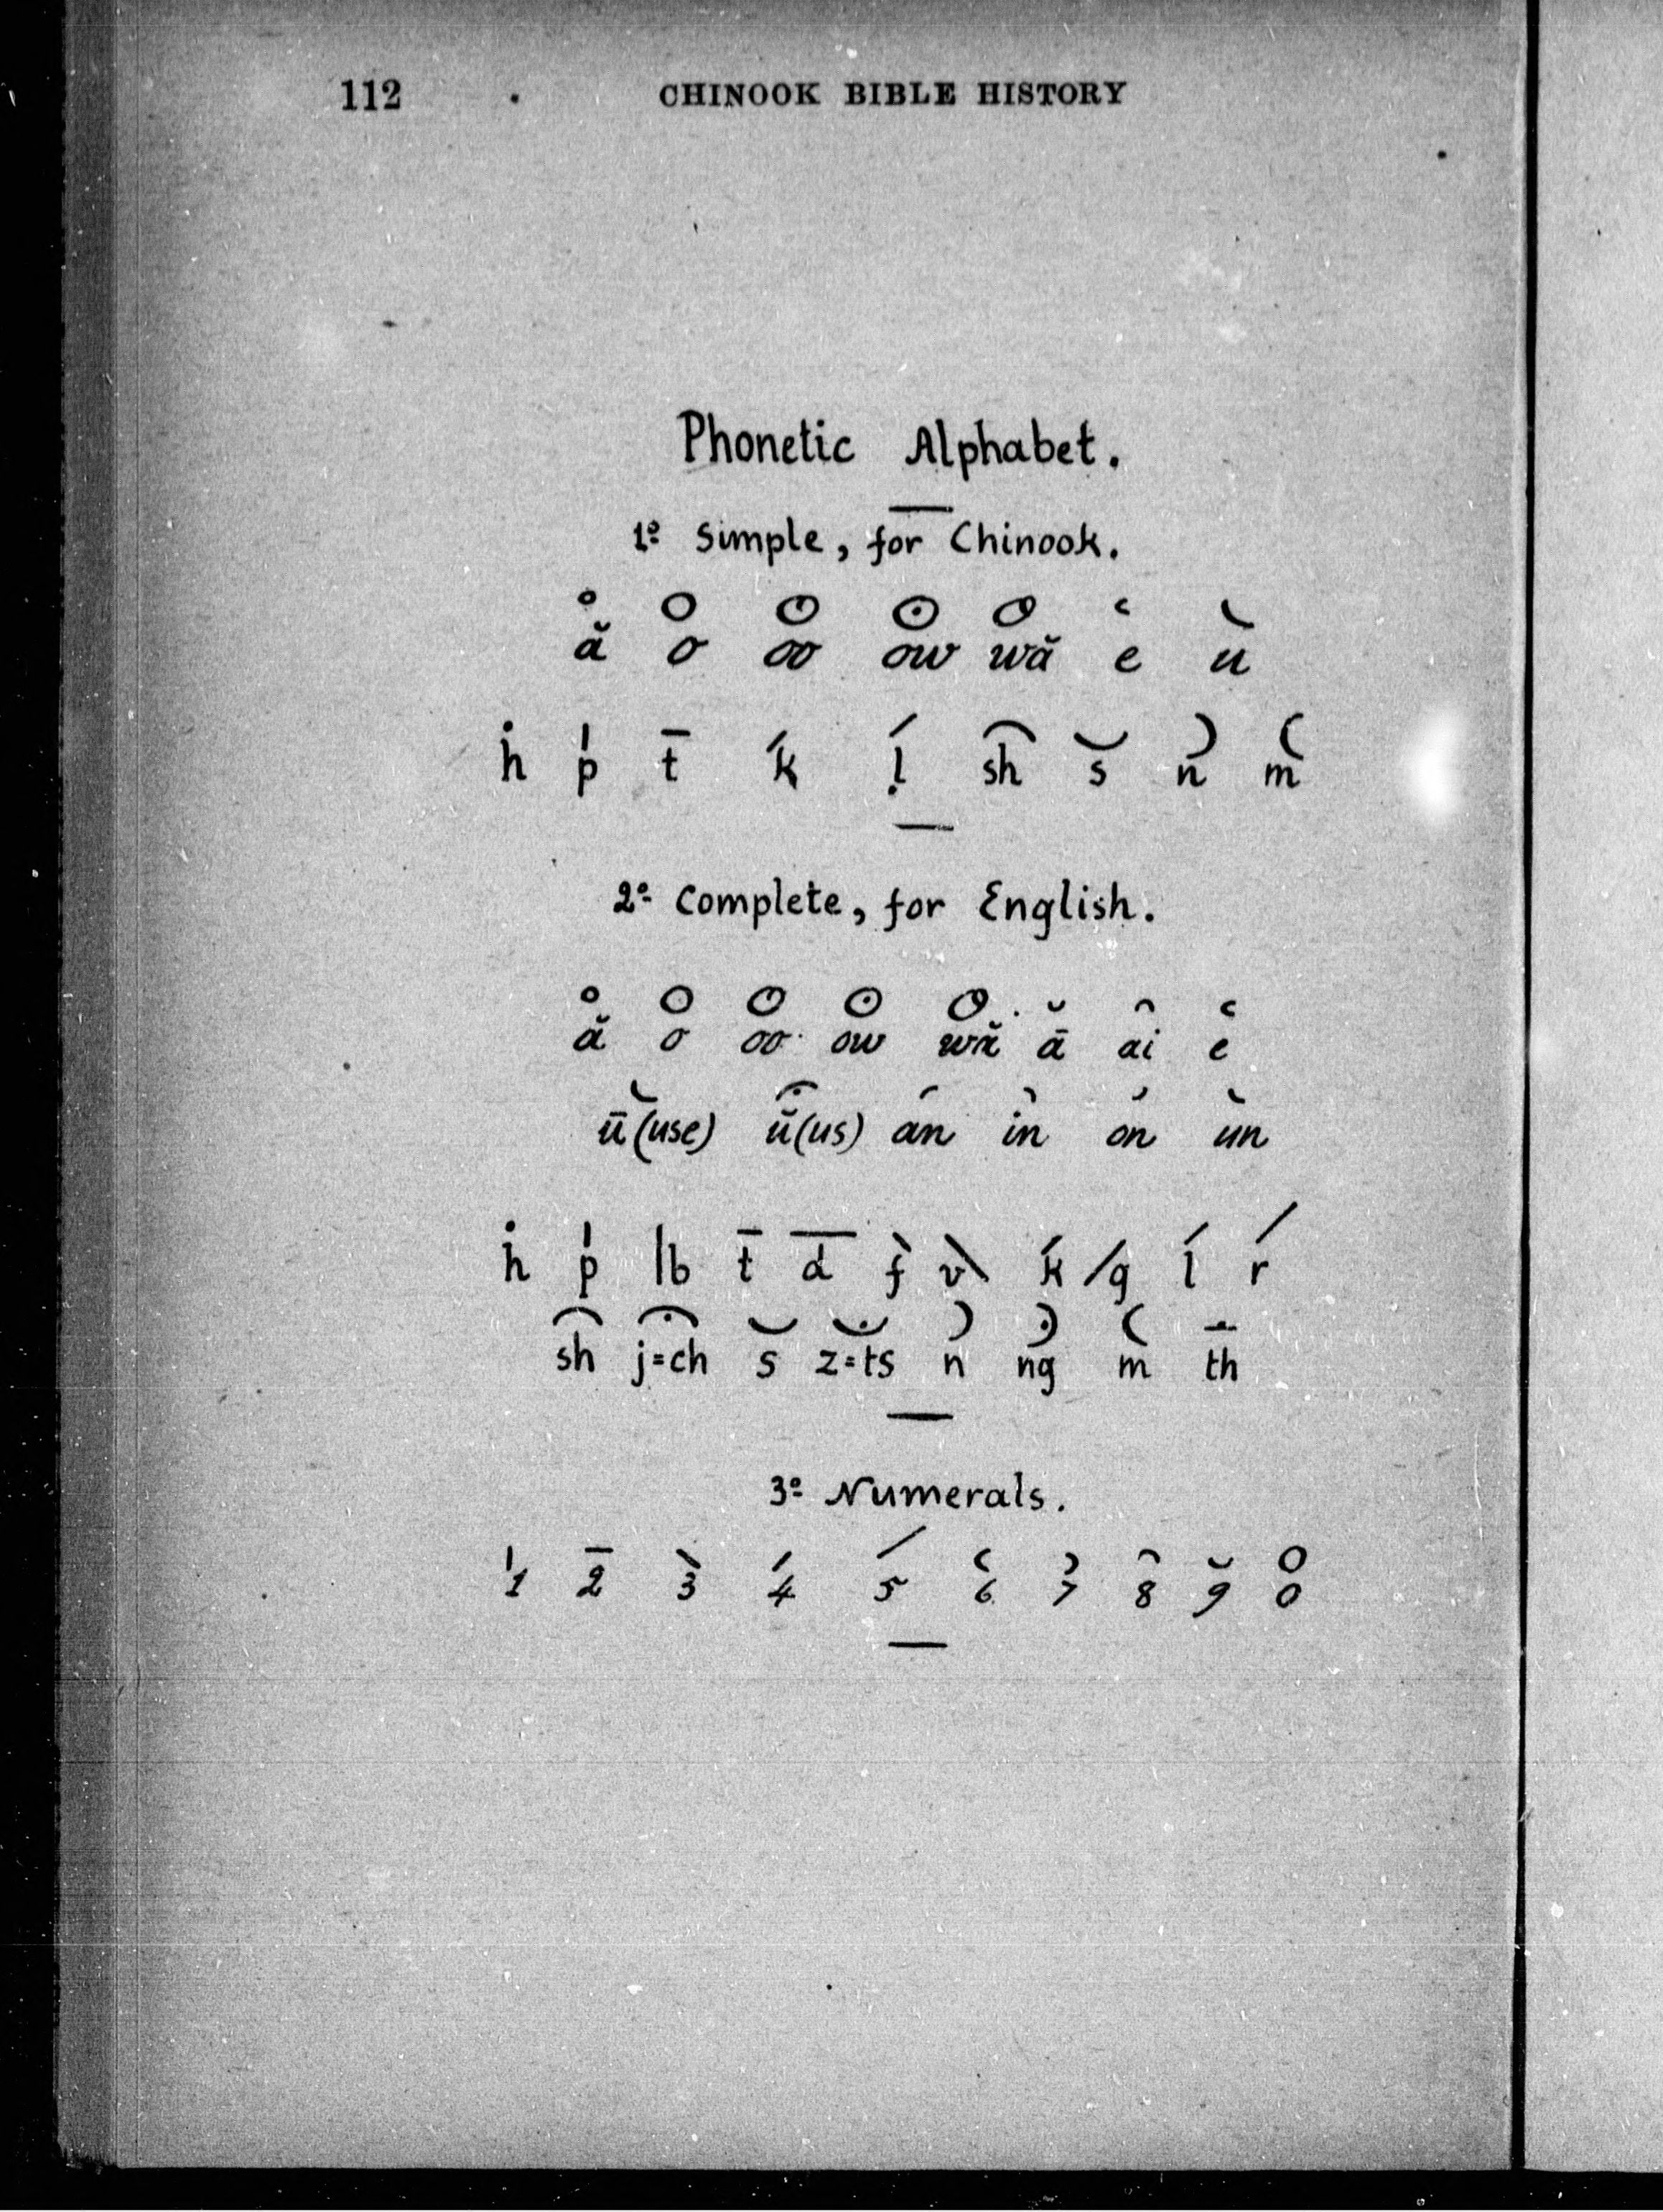 112 CHINOOK BIBLE HISTORY
Phonetic Alphabet.
1º Simple, for Chinook.
ă o oo ow wă e u
h p t k l sh s n m
2º Complete, for English.
ă o oo ow wă ā ai e
ū(use) ŭ(us) an in on un
h p b t d f v k g l r
sh j=ch s z=ts n ng m th
3º Numerals.
1 2 3 4 5 6 7 8 9 0